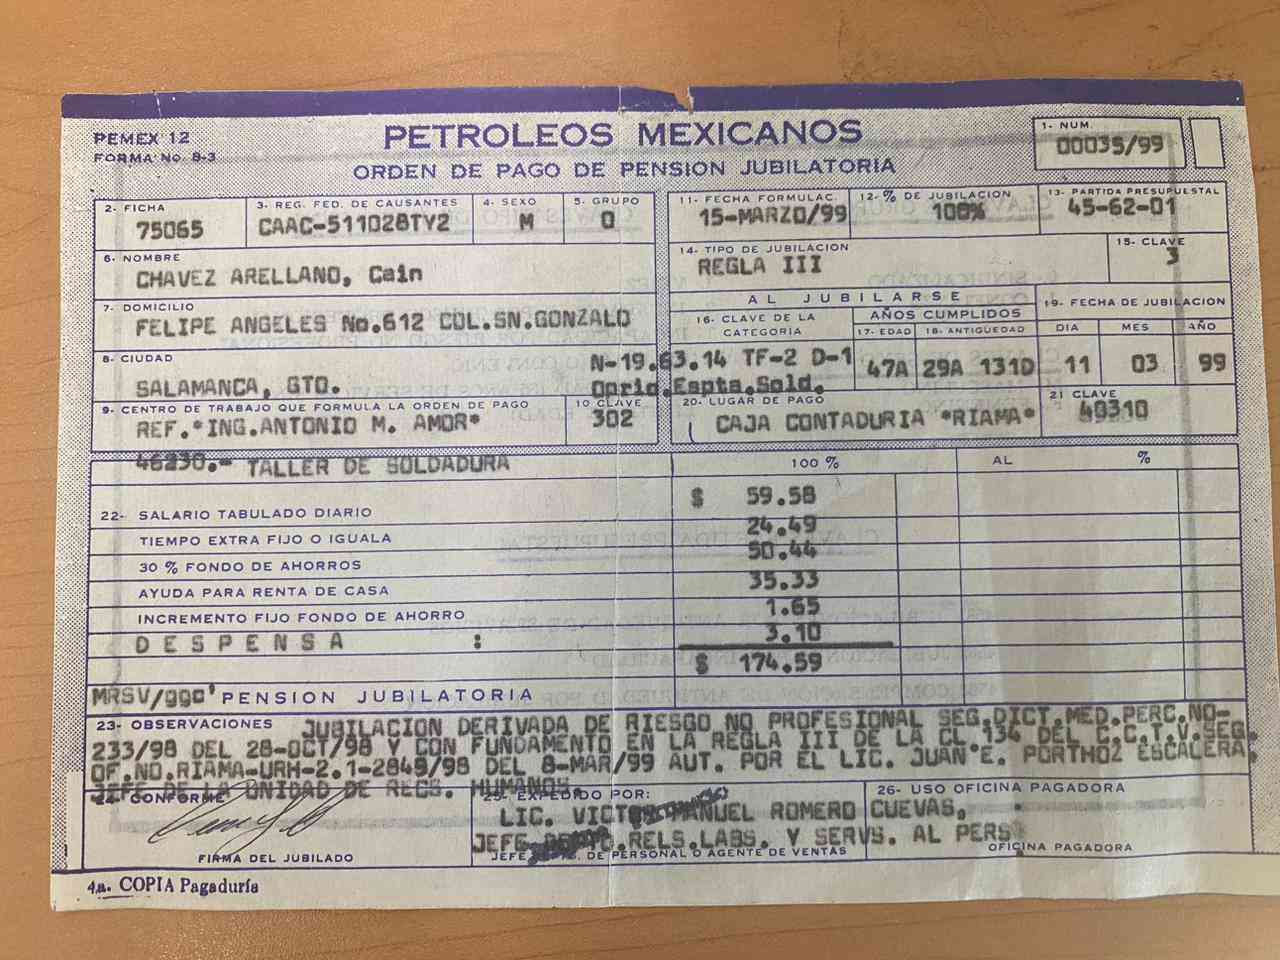 PEMEX 12
FORMA No. B-3
PETROLEOS MEXICANOS
ORDEN DE PAGO DE PENSION JUBILATORIA
1- NUM.
00035/99
2- FICHA
75065
3- REG. FED. DE CAUSANTES
CAAC-511028TY2
4- SEXO
M
5- GRUPO
0
6- NOMBRE
CHAVEZ ARELLANO, Cain
7- DOMICILIO
FELIPE ANGELES No.612 COL.SN.GONZALO
8- CIUDAD
SALAMANCA, GTO.
9- CENTRO DE TRABAJO QUE FORMULA LA ORDEN DE PAGO
REF."ING.ANTONIO M. AMOR"
10 CLAVE
302
11- FECHA FORMULAC.
15-MARZO/99
12- % DE JUBILACION
100%
13- PARTIDA PRESUPUESTAL
45-62-01
14- TIPO DE JUBILACION
REGLA III
15- CLAVE
3
AL JUBILARSE
16- CLAVE DE LA CATEGORIA
N-19.63.14 TF-2 D-1
Oprio.Espta.Sold.
AÑOS CUMPLIDOS
17- EDAD
47A
18- ANTIGUEDAD
29A 131D
19- FECHA DE JUBILACION
DIA MES AÑO
11 03 99
20- LUGAR DE PAGO
CAJA CONTADURIA "RIAMA"
21 CLAVE
40310
46230.- TALLER DE SOLDADURA
100 % AL %
22- SALARIO TABULADO DIARIO $ 59.58
TIEMPO EXTRA FIJO O IGUALA 24.49
30 % FONDO DE AHORROS 50.44
AYUDA PARA RENTA DE CASA 35.33
INCREMENTO FIJO FONDO DE AHORRO 1.65
DESPENSA : 3.10
$ 174.59
MRSV/ggc' PENSION JUBILATORIA
23- OBSERVACIONES JUBILACION DERIVADA DE RIESGO NO PROFESIONAL SEG.DICT.MED.PERC.NO-
233/98 DEL 28-OCT/98 Y CON FUNDAMENTO EN LA REGLA III DE LA CL 134 DEL C.C.T.V.SEG.
OF.NO.RIAMA-URH-2.1-2849/98 DEL 8-MAR/99 AUT. POR EL LIC. JUAN E. PORTHOZ ESCALERA
JEFE DE LA UNIDAD DE RECS. HUMANOS.
24- CONFORME
FIRMA DEL JUBILADO
25- EXPEDIDO POR:
LIC. VICTOR MANUEL ROMERO CUEVAS,
JEFE RELS.LABS. Y SERVS. AL PERS
JEFE DE PERSONAL O AGENTE DE VENTAS
26- USO OFICINA PAGADORA
OFICINA PAGADORA
4a. COPIA Pagaduría